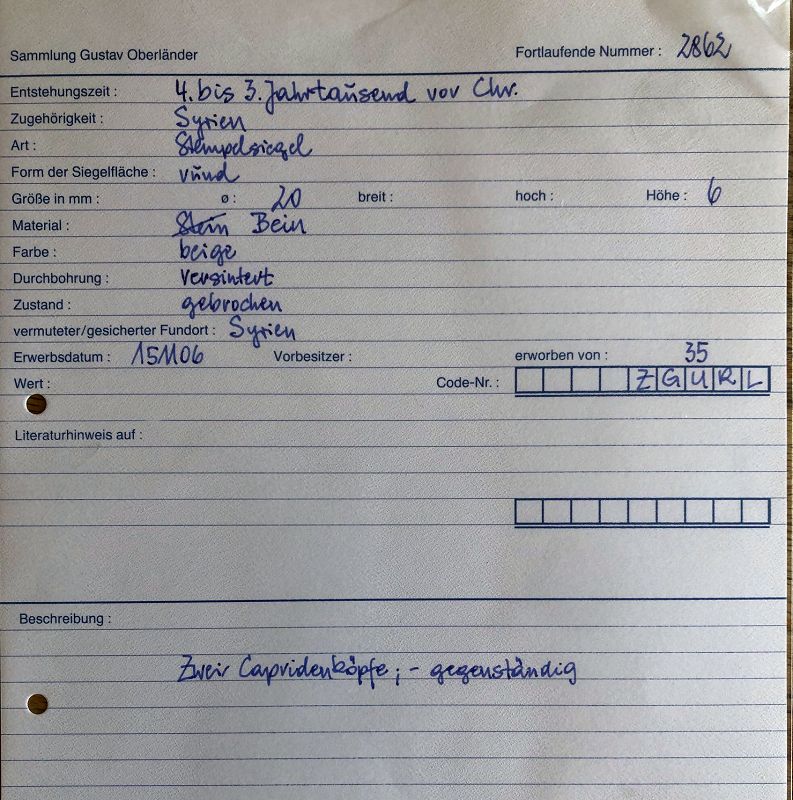 Sammlung Gustav Oberländer Fortlaufende Nummer : 2862
Entstehungszeit : 4. bis 3. Jahrtausend vor Chr.
Zugehörigkeit : Syrien
Art : Stempelsiegel
Form der Siegelfläche : rund
Größe in mm : ø : 20 breit : hoch : Höhe : 6
Material : Stein Bein
Farbe : beige
Durchbohrung : versintert
Zustand : gebrochen
vermuteter/gesicherter Fundort : Syrien
Erwerbsdatum : 151106 Vorbesitzer : erworben von : 35
Wert : Code-Nr. : ZGURL
Literaturhinweis auf :
Beschreibung :
Zweir Capridenköpfe ; - gegenständig